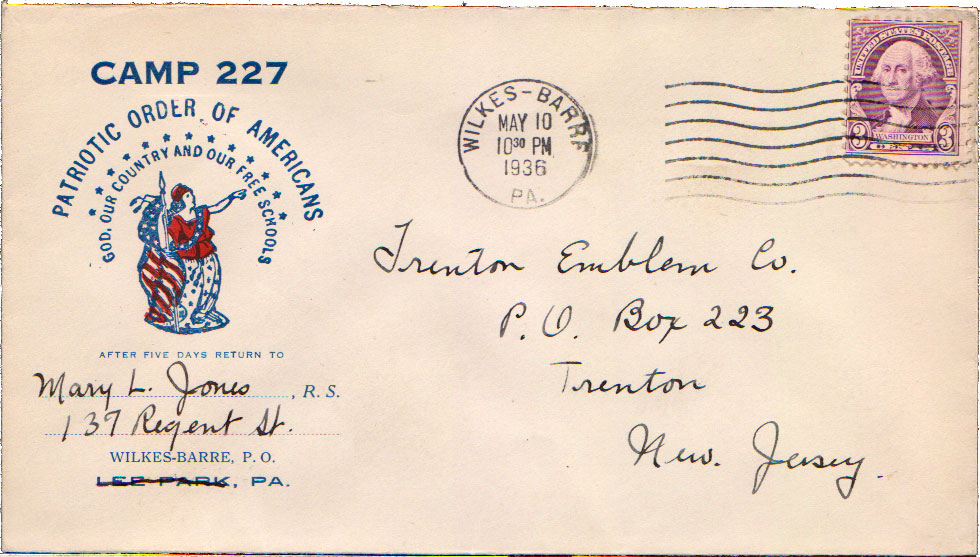 CAMP 227
PATRIOTIC ORDER OF AMERICANS
GOD, OUR COUNTRY AND OUR FREE SCHOOLS
AFTER FIVE DAYS RETURN TO
Mary L. Jones, R. S.
137 Regent St.
WILKES-BARRE, P. O.
LEE PARK, PA.
WILKES-BARRE
MAY 10
10³⁰ PM
1936
PA.
UNITED STATES POSTAGE
WASHINGTON
3 3
Trenton Emblem Co.
P. O. Box 223
Trenton
New. Jersey.